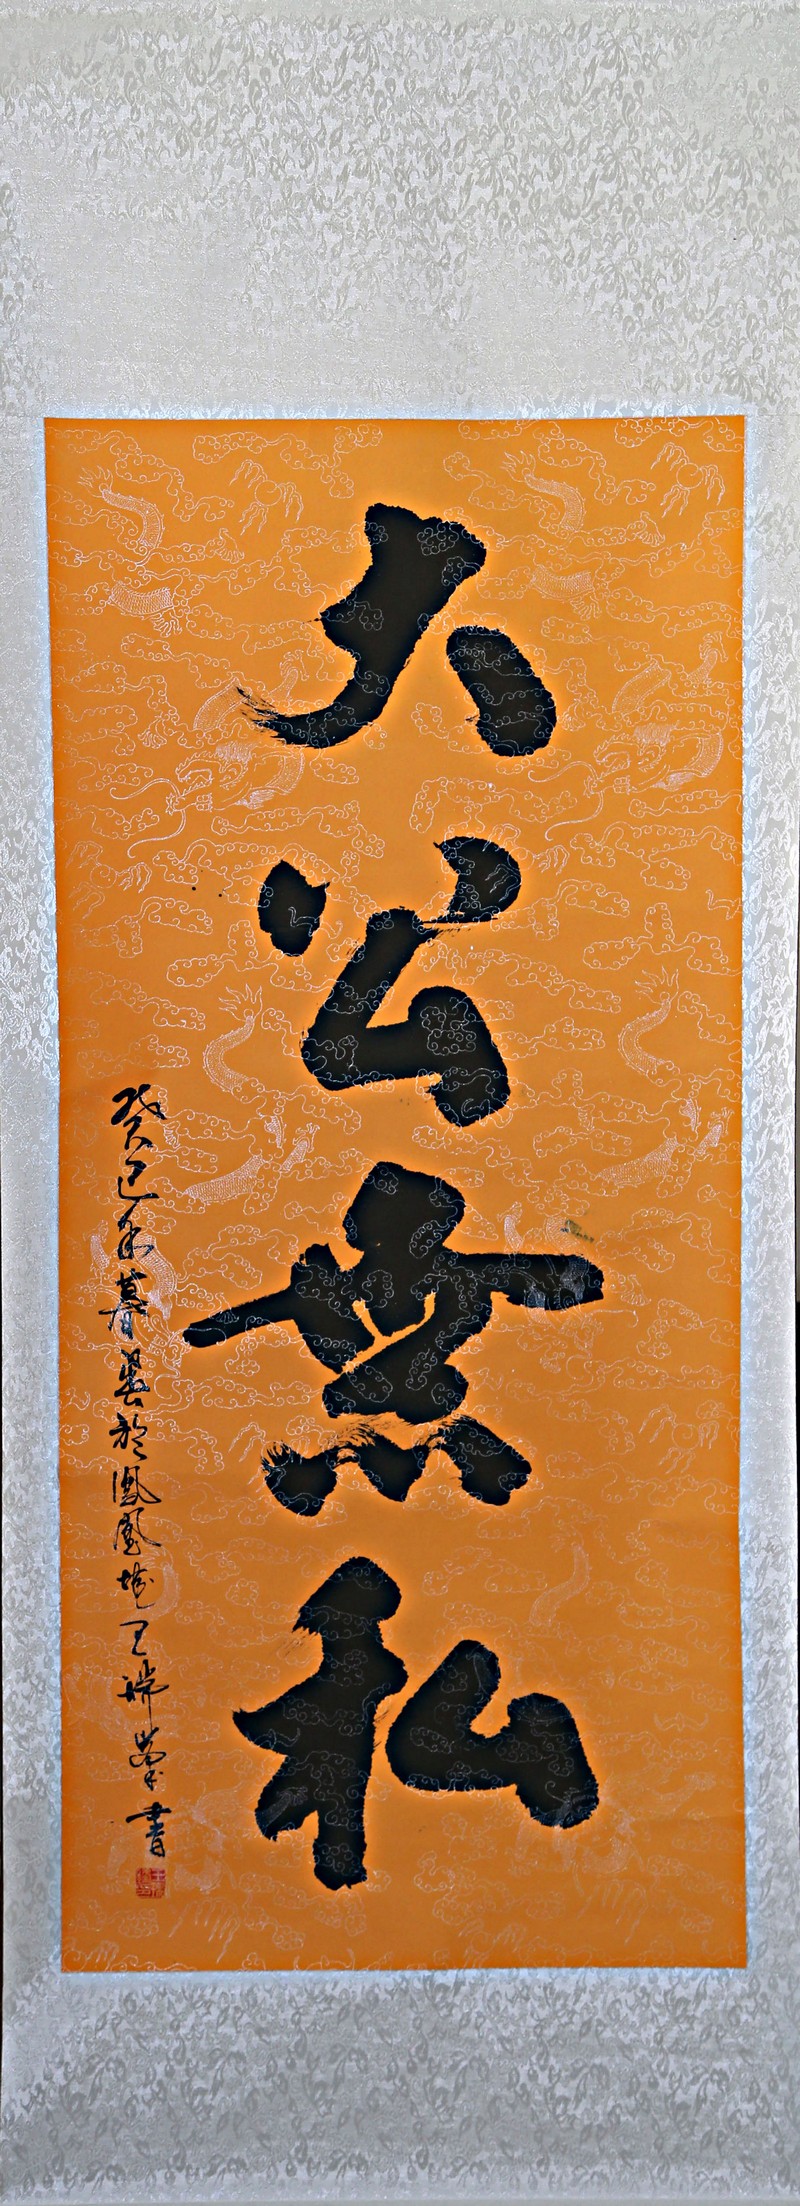 大公無私
癸巳年暮春於鳳凰城王瑞華書